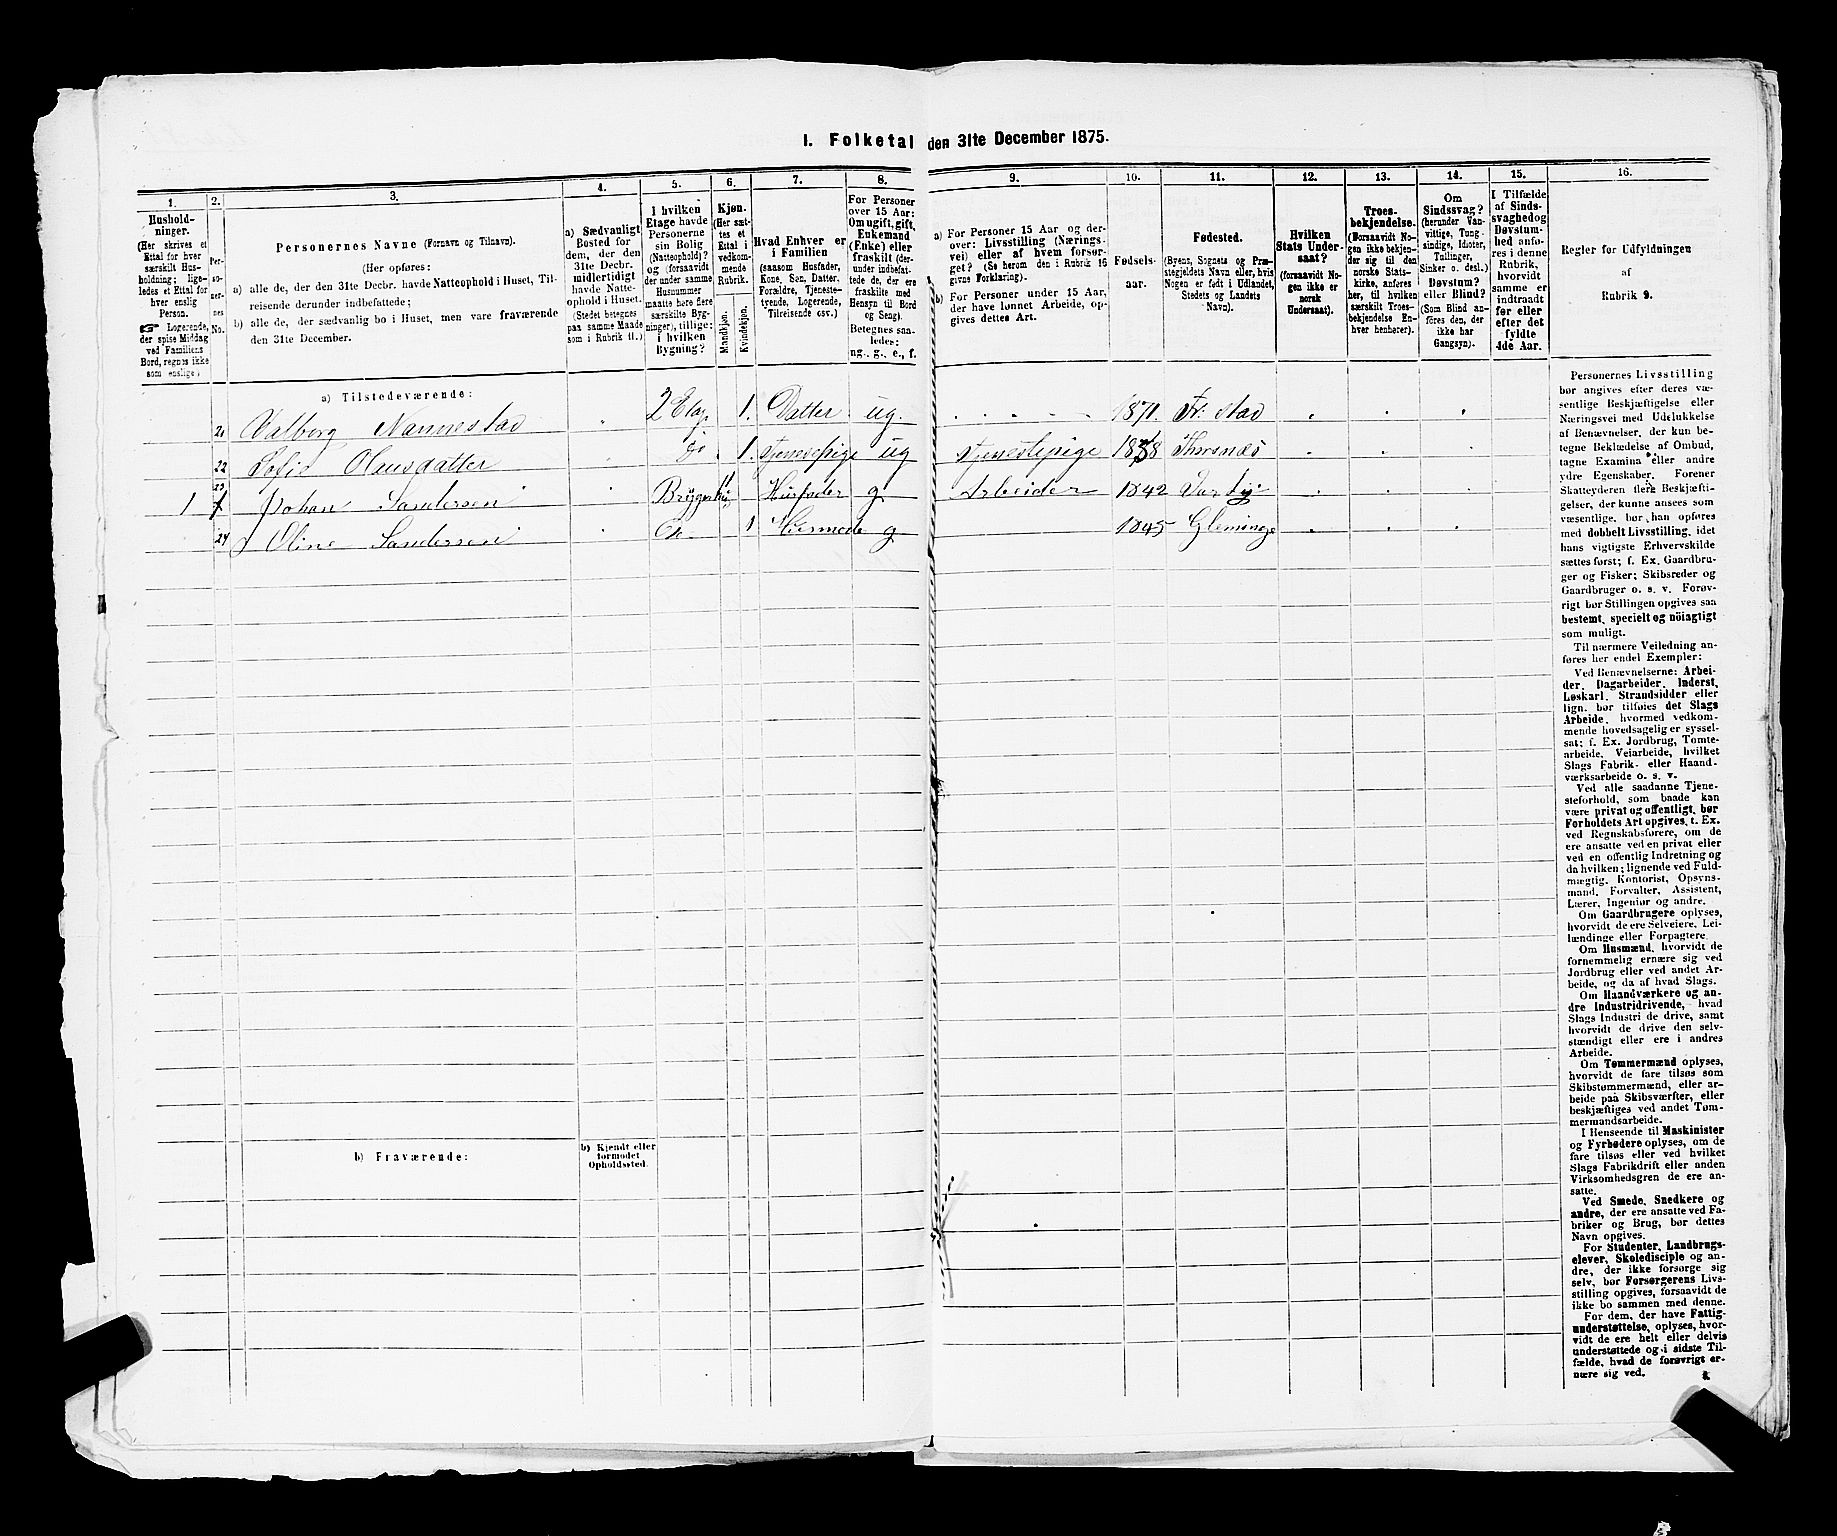 I. Folketal den 31te December 1875.
1. 2. 3. 4. 5. 6. 7. 8. 9. 10. 11. 12. 13. 14. 15. 16.
Hushold-
ninger.
(Her skrives et
Ettal for hver
særskilt Hus-
holdning; lige-
ledes et Ettal for
hver enslig
Person.
☞ Logerende,
der spise Middag
ved Familiens
Bord, regnes ikke
som enslige)
Per-
so-
ner-
nes
No.
Personernes Navne (Fornavn og Tilnavn).
(Her opføres:
a) alle de, der den 31te Decbr. havde Natteophold i Huset, Til-
reisende derunder indbefattede;
b) alle de, der sædvanlig bo i Huset, men vare fraværende
den 31te December.
a) Sædvanligt
Bosted for
dem, der den
31te Decbr.
midlertidigt
havde Natte-
ophold i Huset.
(Stedet betegnes
paa samme Maade
som i Rubrik 11.)
I hvilken
Etage havde
Personerne
sin Bolig
(Natteophold)?
og (forsaavidt
der under samme
Husnummer
maatte høre flere
særskilte Byg-
ninger), tillige:
i hvilken
Bygning?
Kjøn.
(Her sæt-
tes et
Ettal i
vedkom-
mende
Rubrik.)
Mandkjøn.
Kvindekjøn.
Hvad Enhver er
i Familien
(saasom Husfader,
Kone, Søn, Datter,
Forældre, Tjeneste-
tyende, Logerende,
Tilreisende osv.)
For Personer
over 15 Aar:
Om ugift, gift,
Enkemand
(Enke) eller
fraskilt (der-
under indbefat-
tede de, der ere
fraskilte med
Hensyn til Bord
og Seng).
Betegnes saa-
ledes:
ug., g., e., f.
a) For Personer 15 Aar og der-
over: Livsstilling (Nærings-
vei) eller af hvem forsør-
get? (Se herom den i Rubrik 16
givne Forklaring).
b) For Personer under 15 Aar,
der have lønnet Arbeide, op-
gives dettes Art.
Fødsels-
aar.
Fødested.
(Byens, Sognets og Præ-
stegjeldets Navn eller, hvis
Nogen er født i Udlandet,
Stedets og Landets
Navn).
Hvilken
Stats Under-
saat?
(forsaavidt No-
gen ikke er
norsk
Undersaat).
Troes-
bekjendelse.
(Forsaavidt No-
gen ikke bekjen-
der sig til den
norske Stats-
kirke, anføres
her, til hvilken
særskilt Troes-
bekjendelse En-
hver henhører).
Om
Sindssvag?
(herunder Van-
vittige, Tung-
sindige, Idioter,
Tullinger,
Sinker o. desl.)
Døvstum?
eller Blind?
(Som Blind an-
føres den, der
ikke har
Gangsyn).
I Tilfælde
af Sinds-
svaghed og
Døvstum-
hed anfø-
res i denne
Rubrik,
hvorvidt
samme er
indtraadt
før eller
efter det
fyldte
4de Aar.
Regler for Udfyldningen
af
Rubrik 9.
a) Tilstedeværende:
21 Valborg Nannestad 2 Etag. 1. Datter ug. 1871. Fr. stad
22 Sofie Olausdatter do 1. Tjenestepige ug Tjenestepige Thorsnæs
1 23 Johan Sandersen 1 Husfader g Arbeider 1842
24 Oline Sandersen 1 Husmoder g 1845 Gleminge
b) Fraværende:
b) Kjendt eller
formodet
Opholdssted.
Personernes Livsstilling
bør angives efter deres væ-
sentlige Beskjæftigelse eller
Næringsvei med Udelukkelse
af Benævnelser, der kun be-
tegne Beklædelse af Ombud,
tagne Examina eller andre
ydre Egenskaber. Forener
Skatteyderen flere Beskjæfti-
gelser, der kunne ansees som
væsentlige, bør han opføres
med dobbelt Livsstilling, idet
hans vigtigste Erhvervskilde
sættes først; f. Ex. Gaardbru-
ger og Fisker; Skibsreder og
Gaardbruger o. s. v. Forøv-
rigt bør Stillingen opgives saa
bestemt, specielt og nöiagtigt
som muligt.
Til nærmere Veiledning an-
føres her endel Exempler:
Ved Benævnelserne: Arbei-
der, Dagarbeider, Inderst,
Løskarl, Strandsidder eller
lign. bør tilføies det Slags
Arbeide, hvormed vedkom-
mende hovedsagelig er syssel-
sat; f. Ex. Jordbrug, Tomte-
arbeide, Veiarbeide, hvilket
Slags Fabrik- eller Haand-
værksarbeide o. s. v.
Ved alle saadanne Tjene-
steforhold, som baade kan
være privat og offentligt, bør
Forholdets Art opgives, t. Ex.
ved Regnskabsførere, om de
ere ansatte ved en privat eller
ved en offentlig Indretning og
da hvilken; lignende ved Fuld-
mægtig, Kontorist, Opsyns-
mand, Forvalter, Assistent,
Lærer, Ingeniør og andre.
Om Gaardbrugere oplyses,
hvorvidt de ere Selveiere, Lei-
lændinge eller Forpagtere.
Om Husmænd, hvorvidt de
fornemmelig ernære sig ved
Jordbrug eller ved andet Ar-
beide, og da af hvad Slags.
Om Haandværkere og an-
dre Industridrivende, hvad
Slags Industri de drive, samt
hvorvidt de drive den selv-
stændigt eller ere i andres
Arbeide.
Om Tømmermænd oplyses,
hvorvidt de fare tilsøs som
Skibstømmermænd, eller ar-
beide paa Skibsværfter, eller
beskjæftiges ved andet Tøm-
mermandsarbeide.
I Henseende til Maskinister
og Fyrbødere oplyses, om de
fare tilsøs eller ved hvilket
Slags Fabrikdrift eller anden
Virksomhedsgren de ere an-
satte.
Ved Smede, Snedkere og
andre, der ere ansatte ved Fa-
briker og Brug, bør dettes
Navn opgives.
For Studenter, Landbrugs-
elever, Skoledisciple og an-
dre, der ikke forsørge sig
selv, bør Forsørgerens Livs-
stilling opgives, forsaavidt de
ikke bo sammen med denne.
For dem, der have Fattig-
understøttelse, oplyses, hvor-
vidt de ere helt eller delvis
understøttede og i sidste Til-
fælde, hvad de forøvrigt er-
nære sig ved.